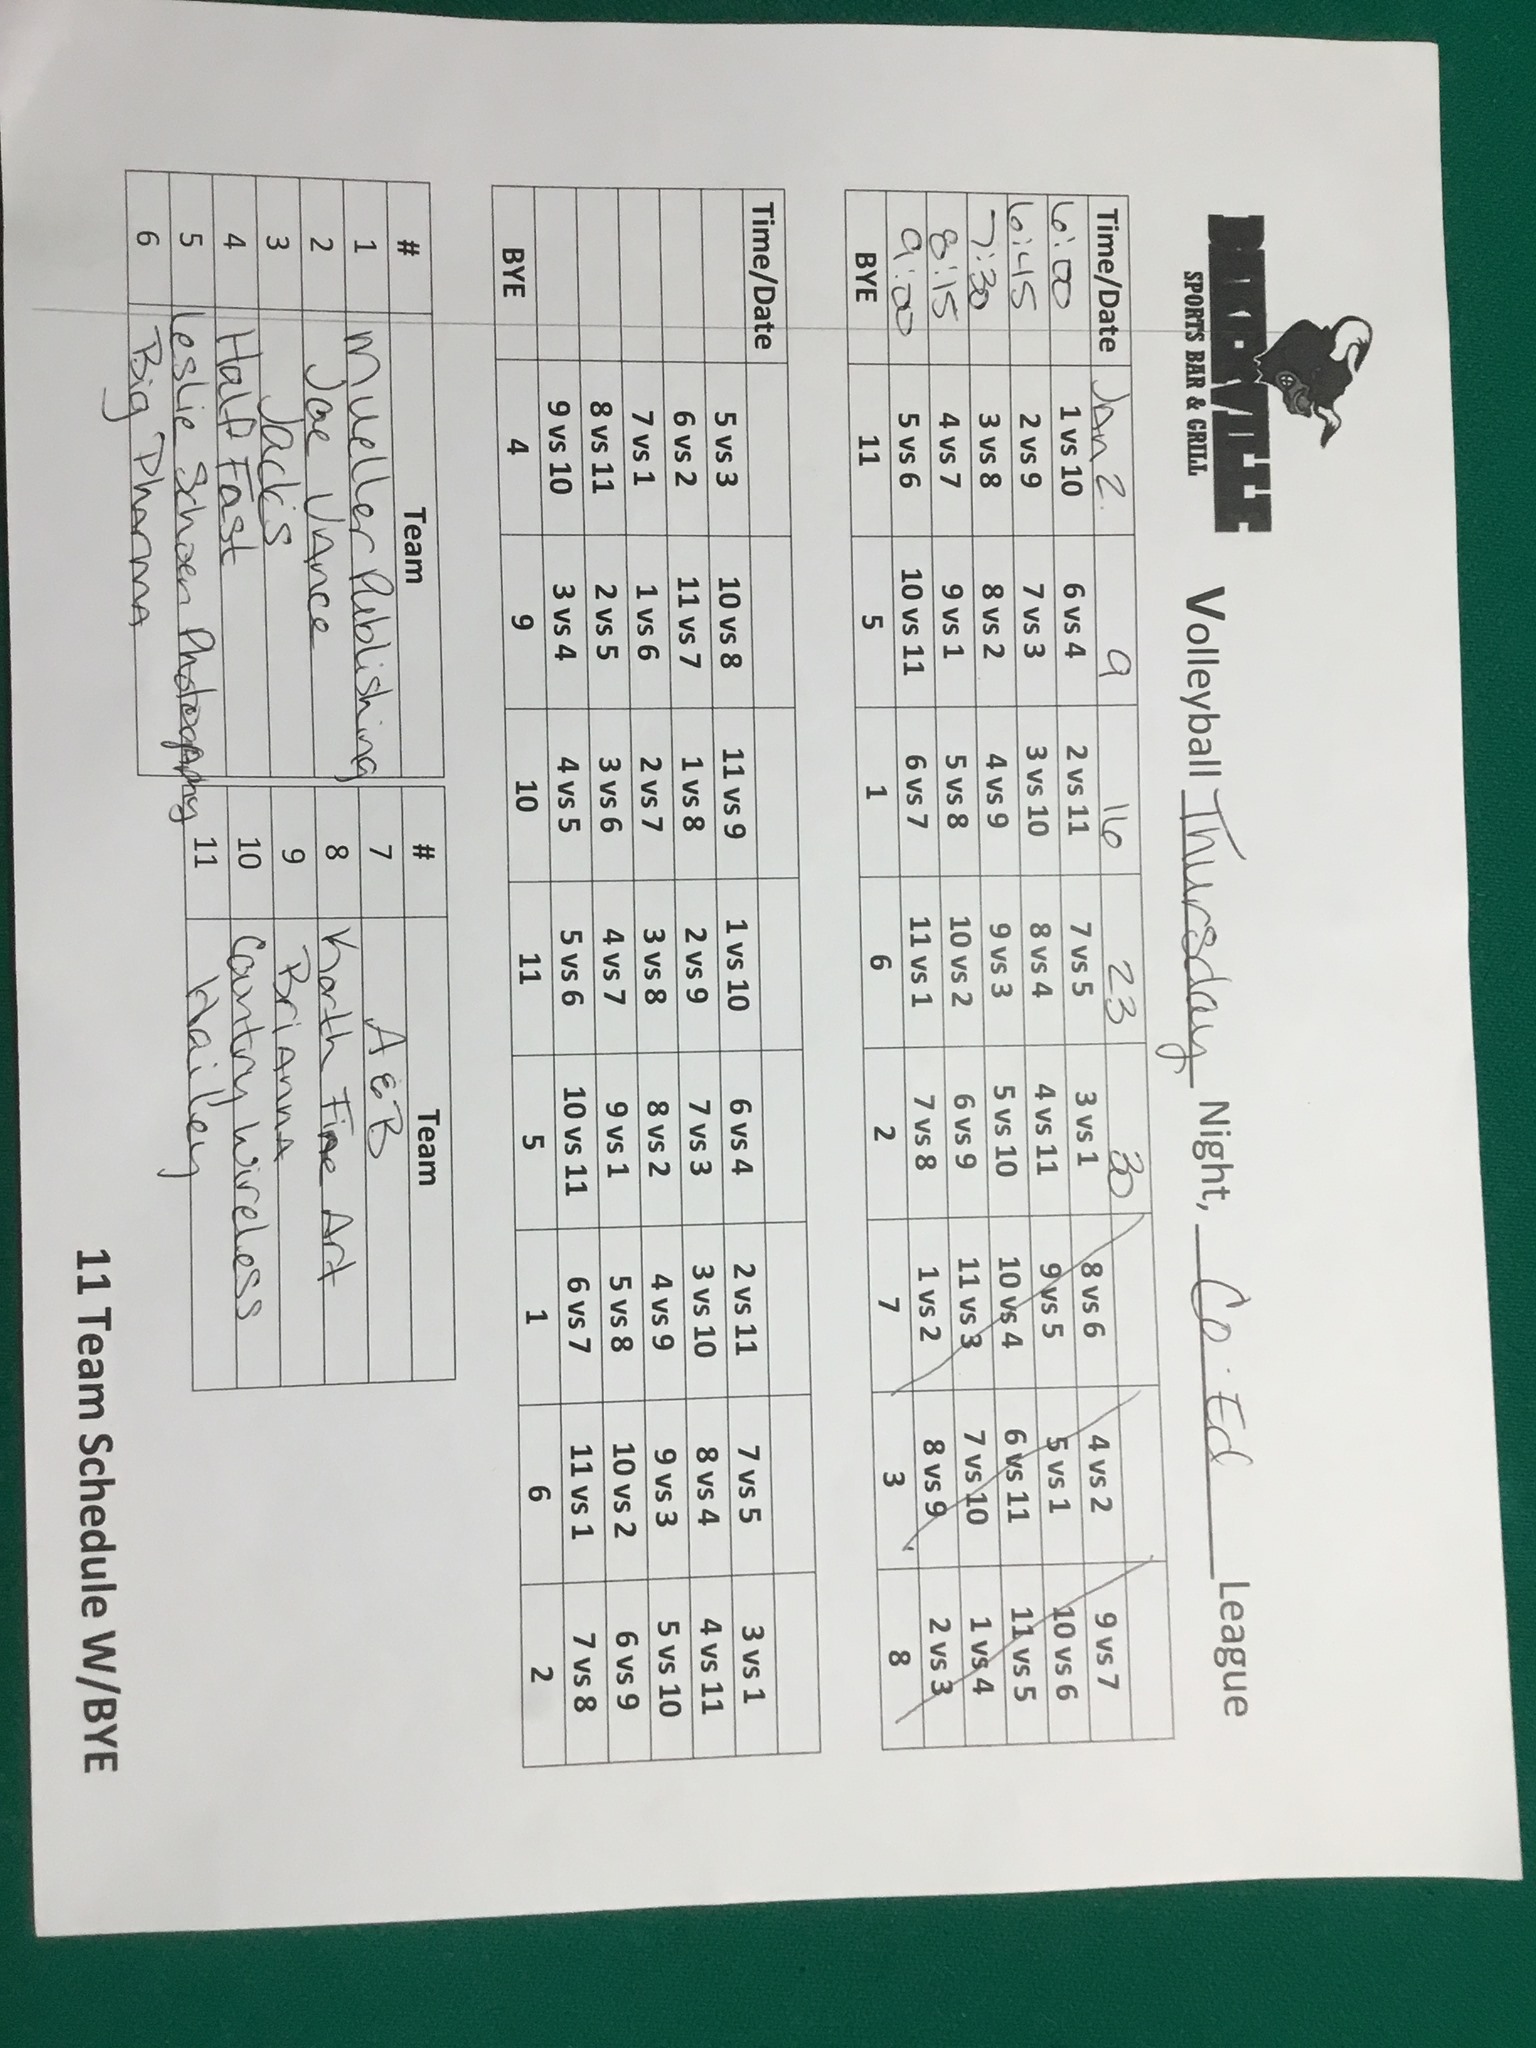 SPORTS BAR & GRILL
Volleyball Thursday Night, Co-Ed League
Time/Date Jan 2 9 16 23 30
6:00 1 vs 10 6 vs 4 2 vs 11 7 vs 5 3 vs 1 8 vs 6 4 vs 2 9 vs 7
6:45 2 vs 9 7 vs 3 3 vs 10 8 vs 4 4 vs 11 9 vs 5 5 vs 1 10 vs 6
7:30 3 vs 8 8 vs 2 4 vs 9 9 vs 3 5 vs 10 10 vs 4 6 vs 11 11 vs 5
8:15 4 vs 7 9 vs 1 5 vs 8 10 vs 2 6 vs 9 11 vs 3 7 vs 10 1 vs 4
9:00 5 vs 6 10 vs 11 6 vs 7 11 vs 1 7 vs 8 1 vs 2 8 vs 9 2 vs 3
BYE 11 5 1 6 2 7 3 8
Time/Date
5 vs 3 10 vs 8 11 vs 9 1 vs 10 6 vs 4 2 vs 11 7 vs 5 3 vs 1
6 vs 2 11 vs 7 1 vs 8 2 vs 9 7 vs 3 3 vs 10 8 vs 4 4 vs 11
7 vs 1 1 vs 6 2 vs 7 3 vs 8 8 vs 2 4 vs 9 9 vs 3 5 vs 10
8 vs 11 2 vs 5 3 vs 6 4 vs 7 9 vs 1 5 vs 8 10 vs 2 6 vs 9
9 vs 10 3 vs 4 4 vs 5 5 vs 6 10 vs 11 6 vs 7 11 vs 1 7 vs 8
BYE 4 9 10 11 5 1 6 2
# Team # Team
1 Mueller Publishing 7 A & B
2 Joe Vance 8 Korth Fine Art
3 Jack's 9 Brianna
4 Half Fast 10 Country Wireless
5 Leslie Schoen Photography 11 Hailey
6 Big Pharma
11 Team Schedule W/BYE